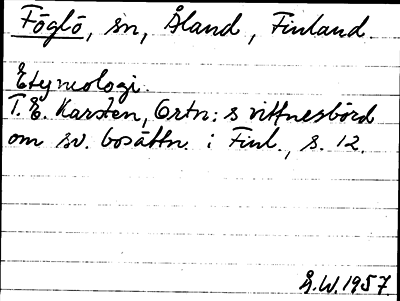 Föglö, sn, Åland, Finland.
Etymologi.
T. E. Karsten, Ortn:s vittnesbörd
om sv. bosättn. i Finl., s. 12.
Å.W. 1957